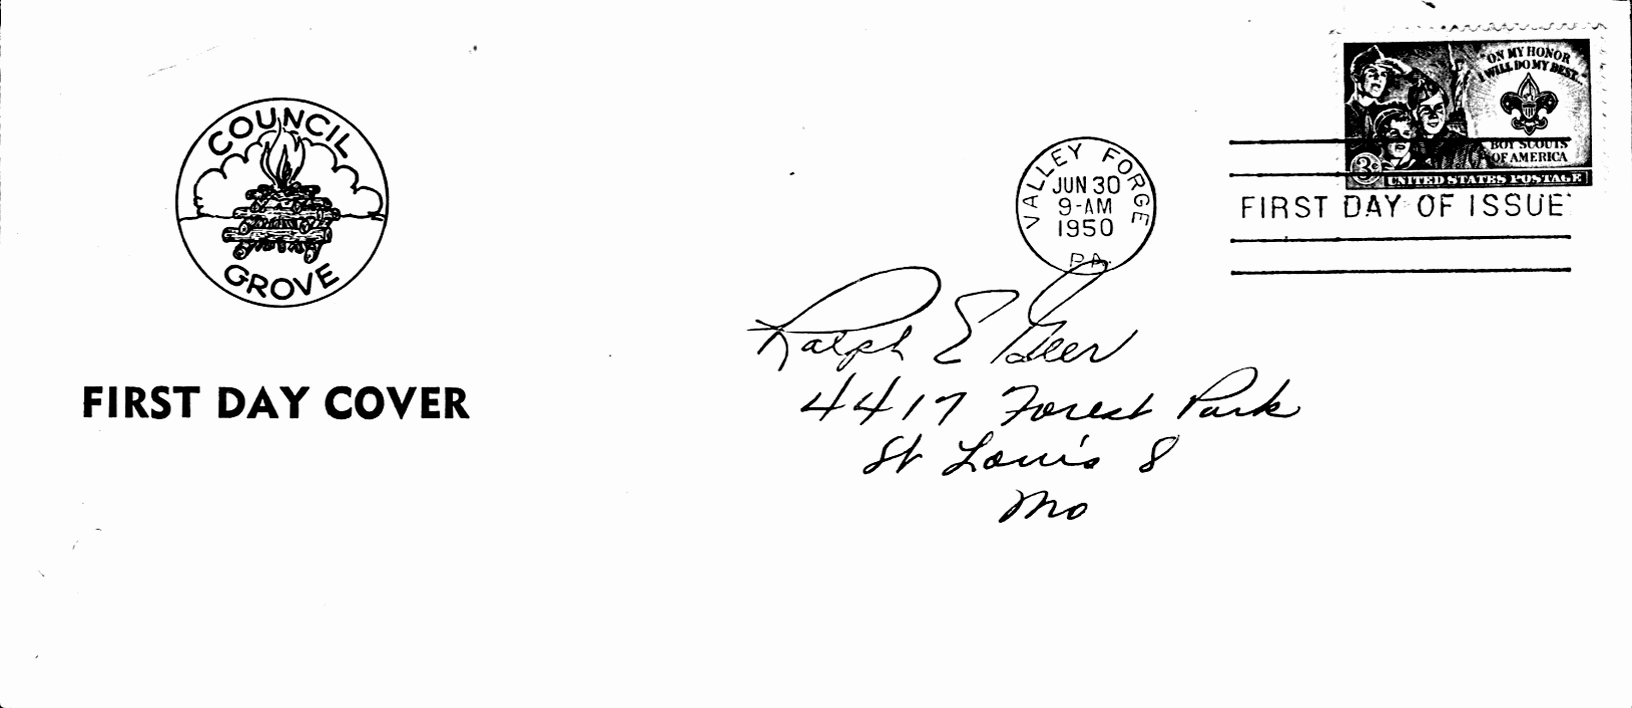 COUNCIL
GROVE
FIRST DAY COVER
VALLEY FORGE
JUN 30
9-AM
1950
PA.
"ON MY HONOR
I WILL DO MY BEST..."
BOY SCOUTS
OF AMERICA
3¢
UNITED STATES POSTAGE
FIRST DAY OF ISSUE
Ralph E Geer
4417 Forest Park
St Louis 8
Mo